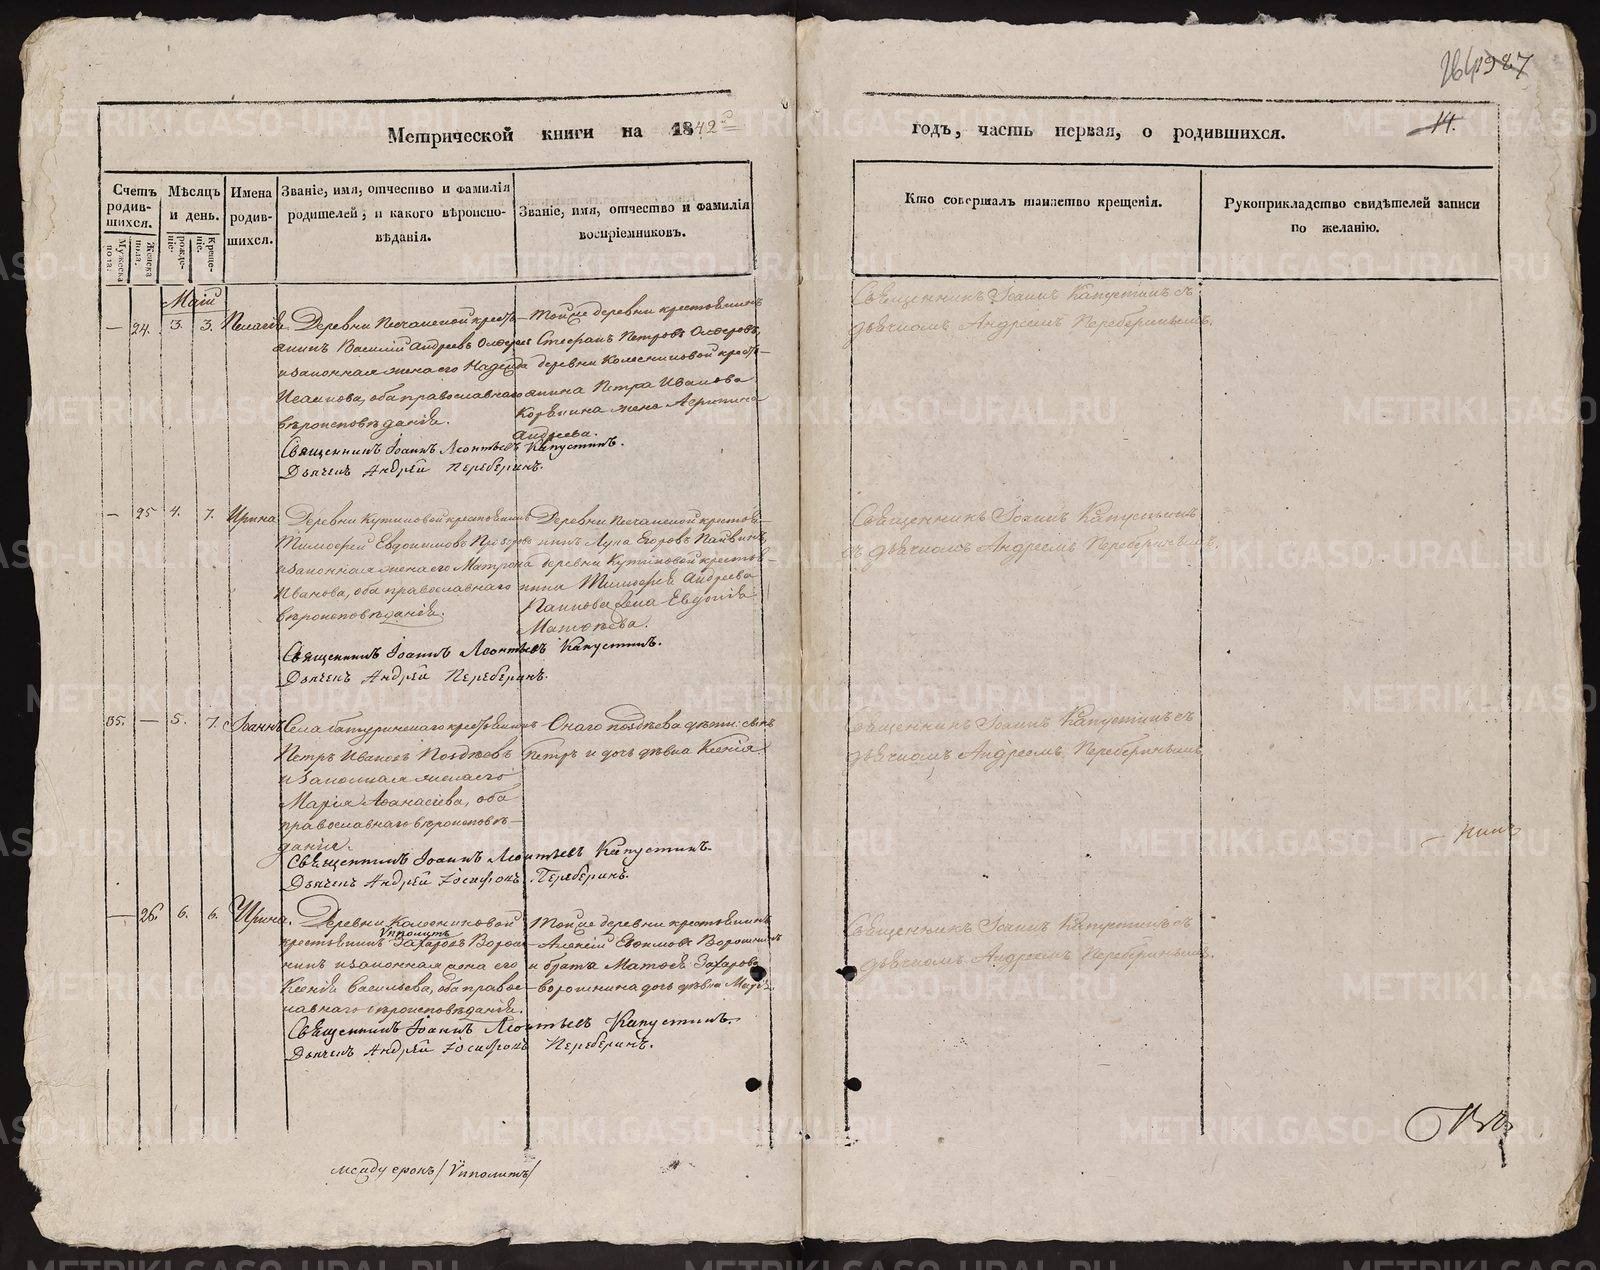 Метрической книги на 1842
годъ, часть первая, о родившихся.
14.
Счетъ родив-шихся.
Мужеска пола.
Женска пола.
Мѣсяцъ и день.
рожде-ніе.
креще-ніе.
Имена родив-шихся.
Званіе, имя, отчество и фамилія
родителей, и какого вѣроиспо-
вѣданія.
Званіе, имя, отчество и фамилія
воспріемниковъ.
Кто совершалъ таинство крещенія.
Рукоприкладство свидѣтелей записи
по желанію.
Маій
— 24. 3. 3. Пелагія
Деревни Песчанской кресть-
янинъ Василій Андреевъ
и законная жена его Надежда
Исакова, оба православнаго
вѣроисповѣданія.
Тойже деревни крестьянинъ
Стефанъ Петровъ
деревни Колесниковой кресть-
янина Петра Иванова
жена Агрипина
Андреева.
Священникъ Іоаннъ Леонтьевъ Капустинъ.
Дьячекъ Андрей Переберинъ.
Священникъ Іоаннъ Капустинъ съ
дьячкомъ Андреемъ Переберинымъ.
— 25 4. 7. Ирина
Деревни Кутиковой крестьянинъ
Тимофей Евдокимовъ
и законная жена его Матрона
Иванова, оба православнаго
вѣроисповѣданія.
Деревни Песчанской крестья-
нинъ Лука Егоровъ
деревни Кутиковой крестья-
нина Тимофея Андреева
жена Евдокія
Матвѣева.
Священникъ Іоаннъ Леонтьевъ Капустинъ.
Дьячекъ Андрей Переберинъ.
Священникъ Іоаннъ Капустинъ
съ дьячкомъ Андреемъ Переберинымъ.
35. — 5. 7. Іоаннъ
Села Батуринскаго крестьянинъ
Петръ Ивановъ Поздѣевъ
и законная жена его
Марія Афанасіева, оба
православнаго вѣроисповѣ-
данія.
Онаго Поздѣева дѣти: сынъ
Петръ и дочь дѣвка Ксенія
Священникъ Іоаннъ Леонтьевъ Капустинъ.
Дьячекъ Андрей Іосифовъ Переберинъ.
Священникъ Іоаннъ Капустинъ съ
дьячкомъ Андреемъ Переберинымъ
— 26. 6. 6. Ирина.
Деревни Колесниковой
Ипполитъ
крестьянинъ Захаровъ Ворош-
нинъ и законная жена его
Ксенія Васильева, оба правос-
лавнаго вѣроисповѣданія.
Тойже деревни крестьянинъ
Алексій Ефимовъ Ворошнинъ
и брата Матфея Захарова
Ворошнина дочь дѣвка
Священникъ Іоаннъ Леонтьевъ Капустинъ.
Дьячекъ Андрей Іосифовъ Переберинъ.
Священникъ Іоаннъ Капустинъ съ
дьячкомъ Андреемъ Переберинымъ.
между срокъ /Ипполитъ/
METRIKI.GASO-URAL.RU